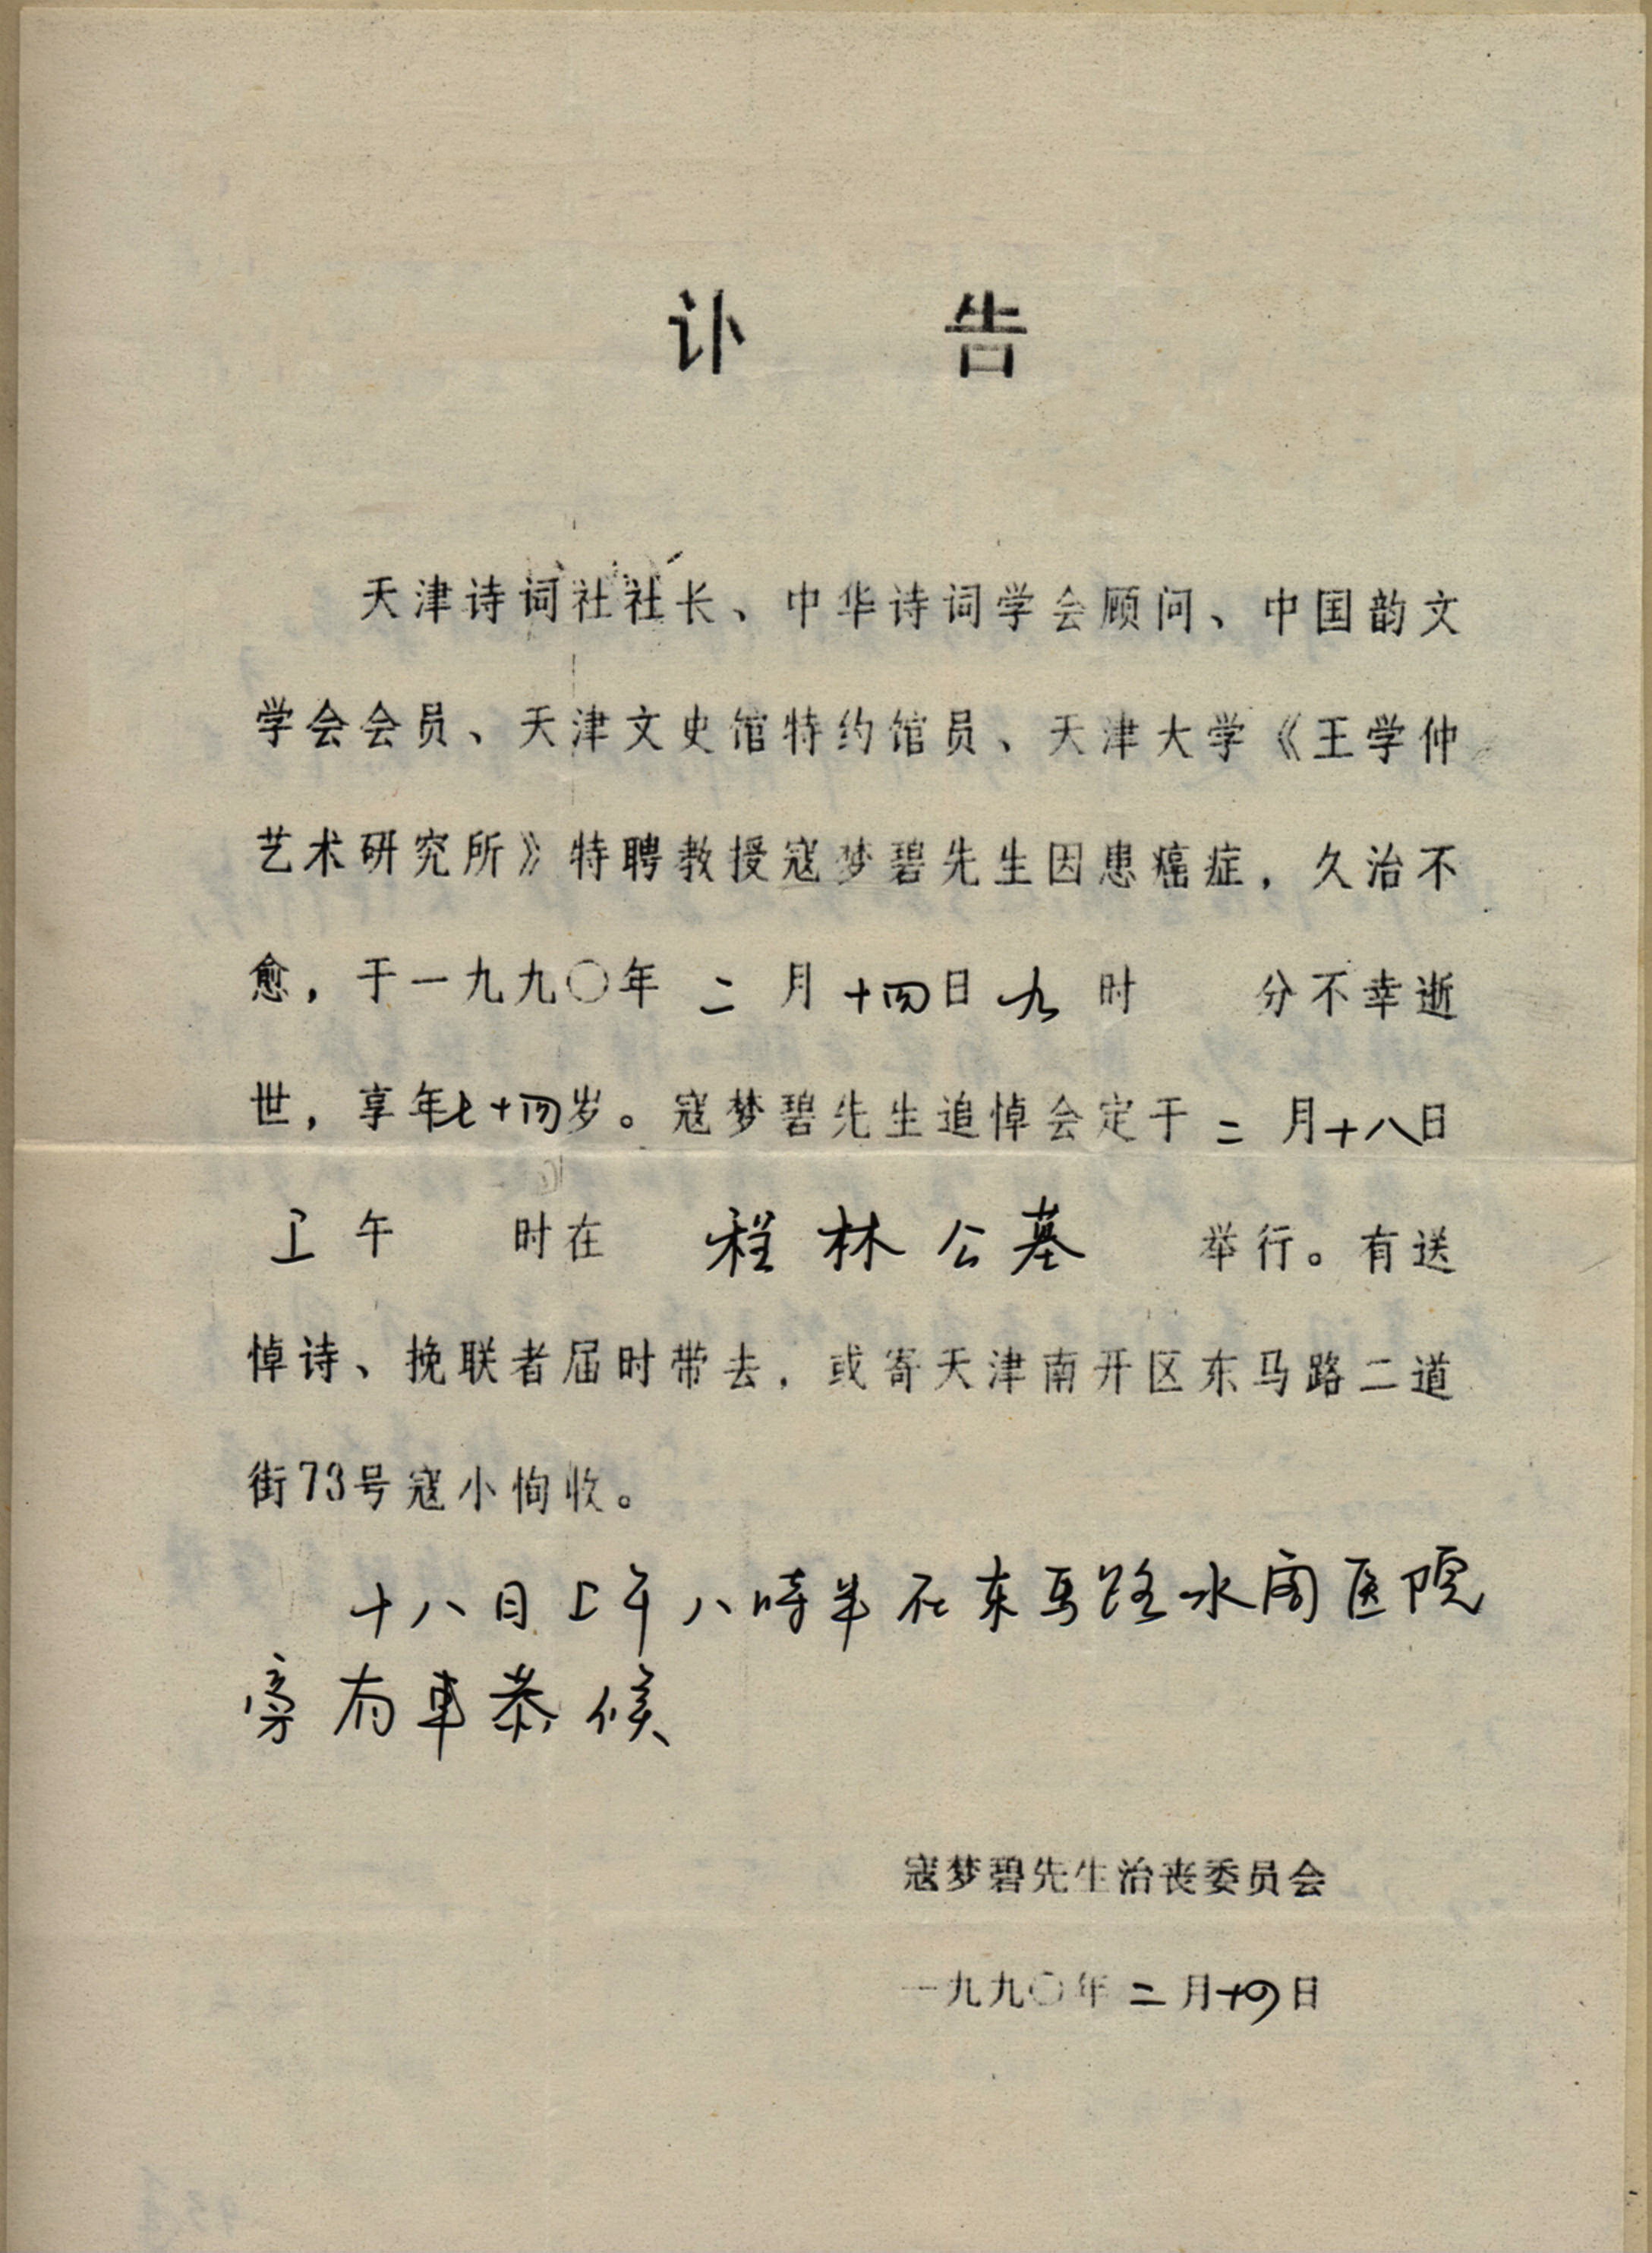 讣 告
天津诗词社社长、中华诗词学会顾问、中国韵文
学会会员、天津文史馆特约馆员、天津大学《王学仲
艺术研究所》特聘教授寇梦碧先生因患癌症，久治不
愈，于一九九〇年 二 月十四日九 时 分不幸逝
世，享年七十四岁。寇梦碧先生追悼会定于 二 月十八日
上 午 时在 程林公墓 举行。有送
悼诗、挽联者届时带去，或寄天津南开区东马路二道
街73号寇小恂收。
十八日上午八時半在东马路水阁医院
旁有車恭候
寇梦碧先生治丧委员会
一九九〇年 二 月十四日